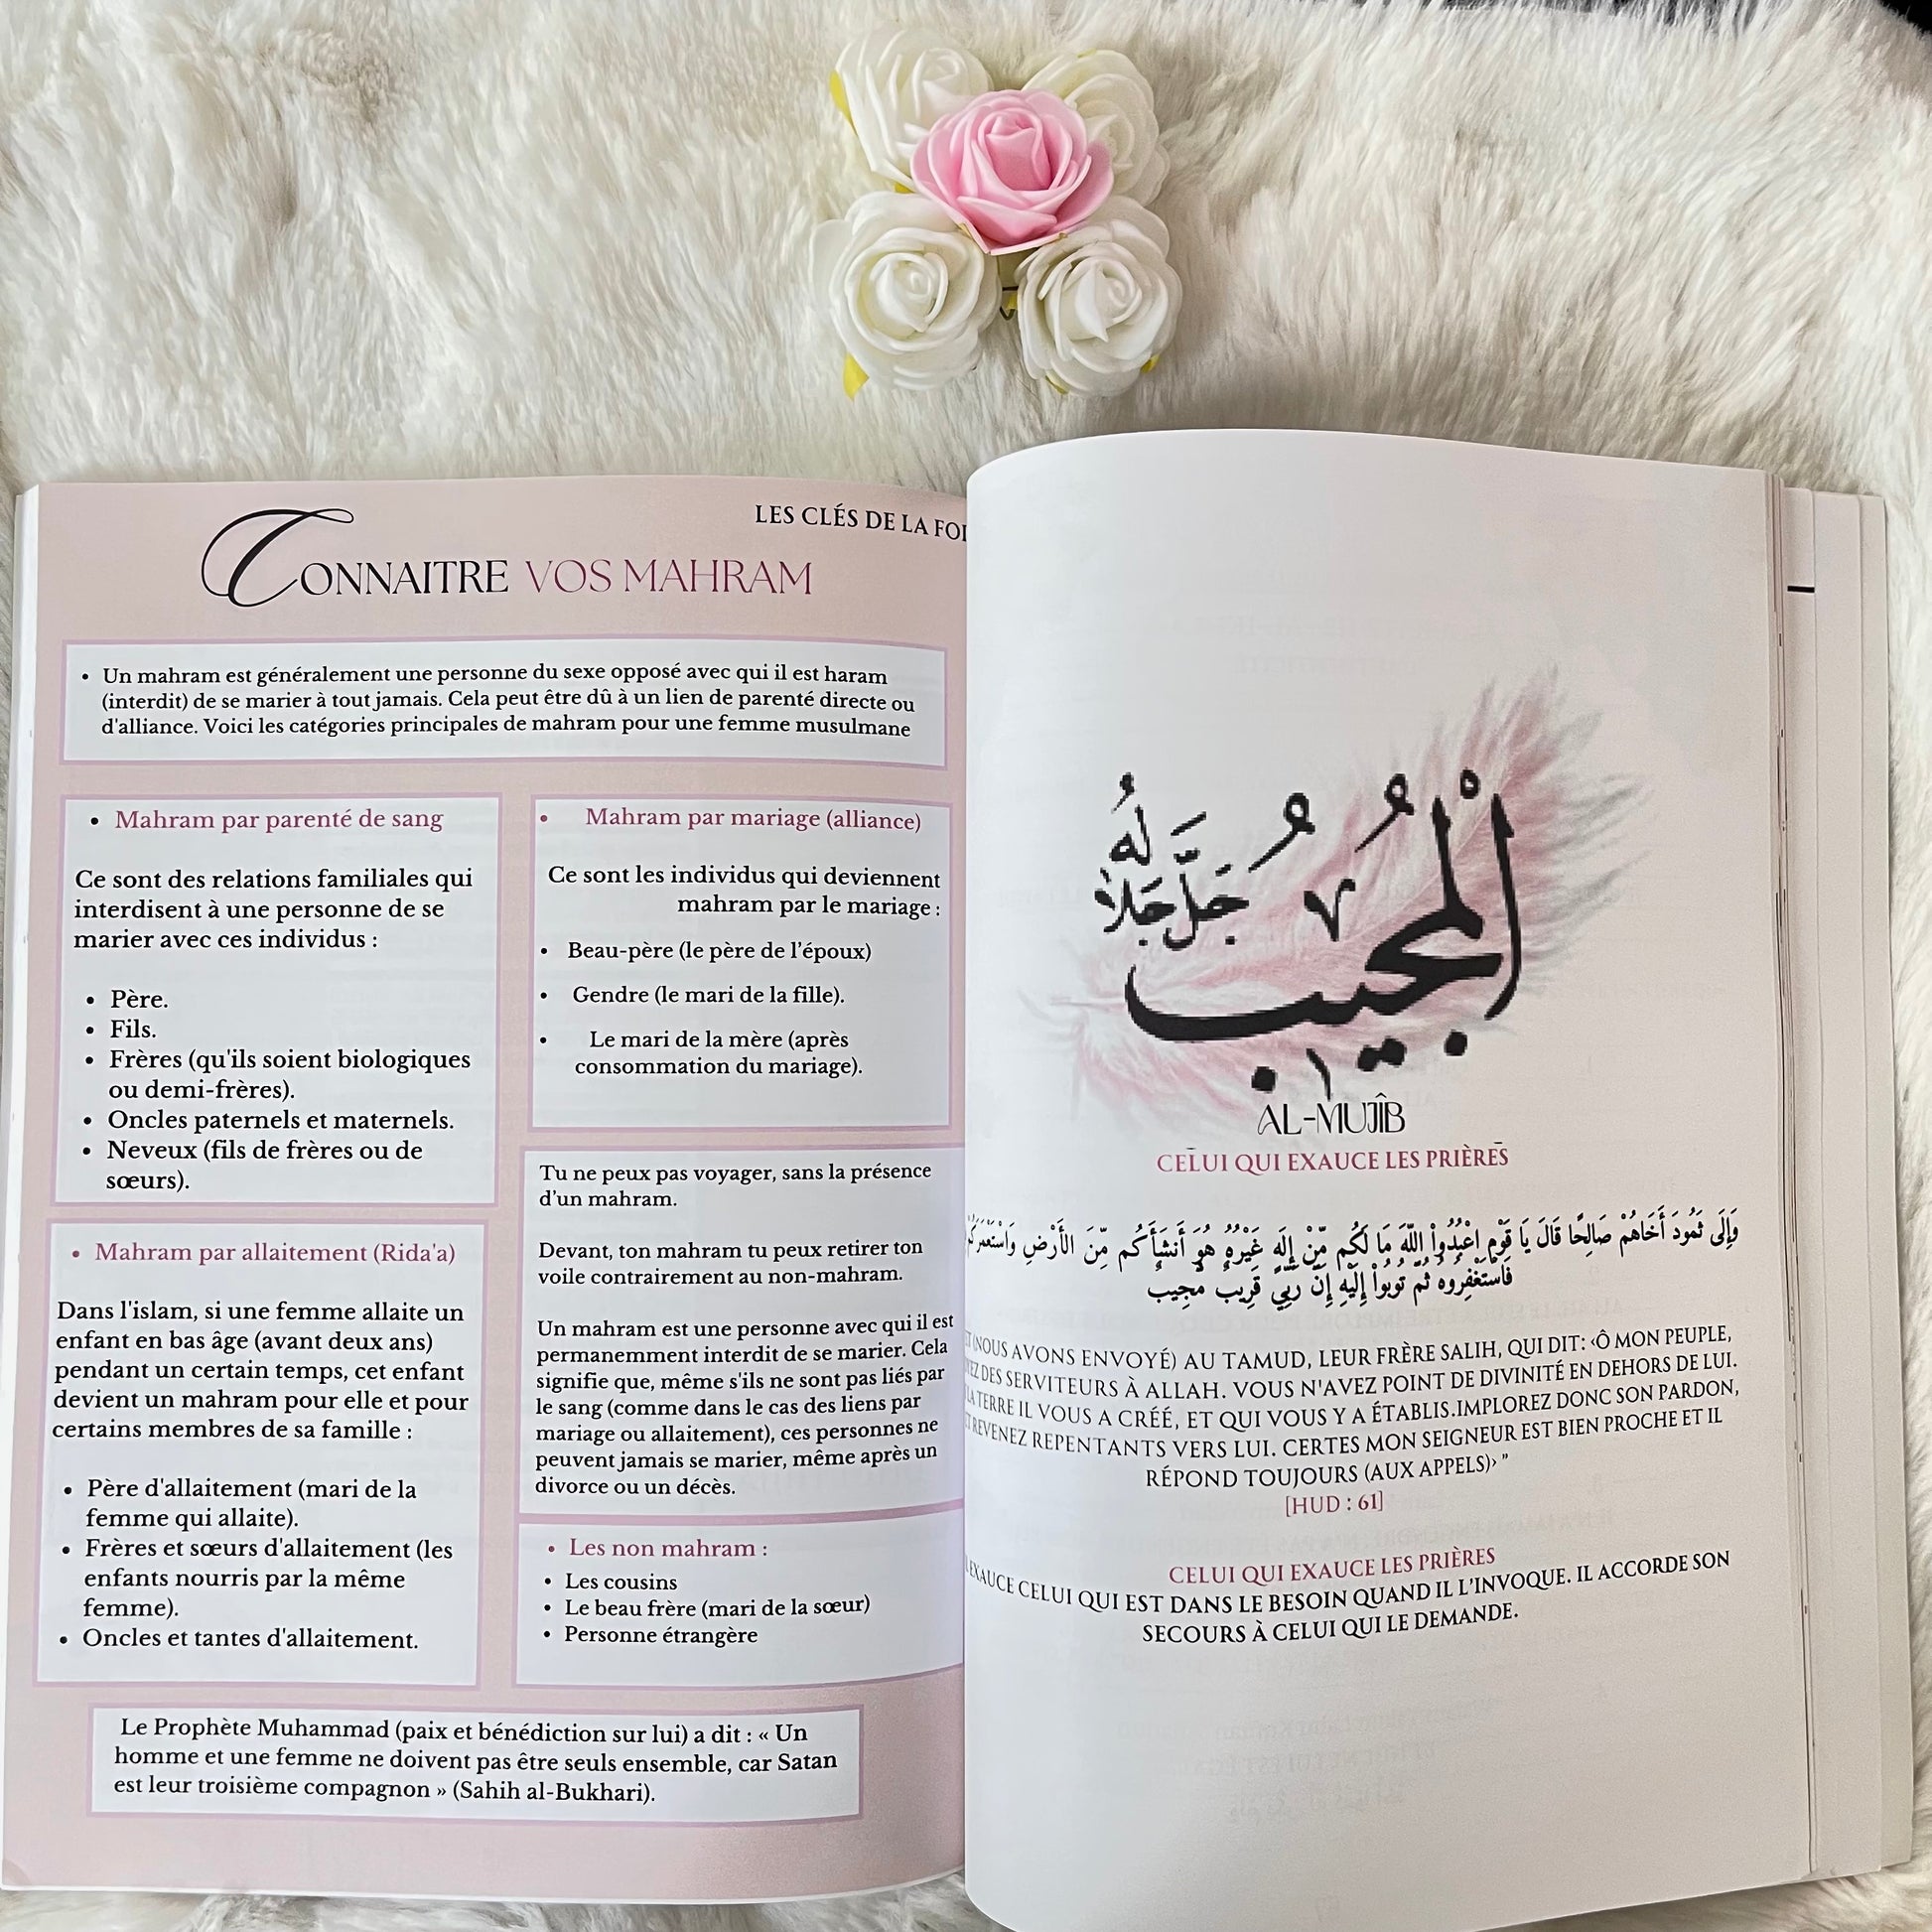 LES CLÉS DE LA FOI
CONNAITRE VOS MAHRAM
• Un mahram est généralement une personne du sexe opposé avec qui il est haram
(interdit) de se marier à tout jamais. Cela peut être dû à un lien de parenté directe ou
d'alliance. Voici les catégories principales de mahram pour une femme musulmane
• Mahram par parenté de sang
Ce sont des relations familiales qui
interdisent à une personne de se
marier avec ces individus :
• Père.
• Fils.
• Frères (qu'ils soient biologiques
ou demi-frères).
• Oncles paternels et maternels.
• Neveux (fils de frères ou de
sœurs).
• Mahram par allaitement (Rida'a)
Dans l'islam, si une femme allaite un
enfant en bas âge (avant deux ans)
pendant un certain temps, cet enfant
devient un mahram pour elle et pour
certains membres de sa famille :
• Père d'allaitement (mari de la
femme qui allaite).
• Frères et sœurs d'allaitement (les
enfants nourris par la même
femme).
• Oncles et tantes d'allaitement.
• Mahram par mariage (alliance)
Ce sont les individus qui deviennent
mahram par le mariage :
• Beau-père (le père de l'époux)
• Gendre (le mari de la fille).
• Le mari de la mère (après
consommation du mariage).
Tu ne peux pas voyager, sans la présence
d'un mahram.
Devant, ton mahram tu peux retirer ton
voile contrairement au non-mahram.
Un mahram est une personne avec qui il est
permanemment interdit de se marier. Cela
signifie que, même s'ils ne sont pas liés par
le sang (comme dans le cas des liens par
mariage ou allaitement), ces personnes ne
peuvent jamais se marier, même après un
divorce ou un décès.
• Les non mahram :
• Les cousins
• Le beau frère (mari de la sœur)
• Personne étrangère
Le Prophète Muhammad (paix et bénédiction sur lui) a dit : « Un
homme et une femme ne doivent pas être seuls ensemble, car Satan
est leur troisième compagnon » (Sahih al-Bukhari).
الْمُجِيبُ جَلَّ جَلَالُهُ
AL-MUJÎB
CELUI QUI EXAUCE LES PRIÈRES
وَإِلَى ثَمُودَ أَخَاهُمْ صَالِحًا قَالَ يَا قَوْمِ اعْبُدُواْ اللّهَ مَا لَكُم مِّنْ إِلَهٍ غَيْرُهُ هُوَ أَنشَأَكُم مِّنَ الأَرْضِ وَاسْتَعْمَرَكُمْ
فَاسْتَغْفِرُوهُ ثُمَّ تُوبُواْ إِلَيْهِ إِنَّ رَبِّي قَرِيبٌ مُّجِيب
(NOUS AVONS ENVOYÉ) AU TAMUD, LEUR FRÈRE SALIH, QUI DIT: ‹Ô MON PEUPLE,
DES SERVITEURS À ALLAH. VOUS N'AVEZ POINT DE DIVINITÉ EN DEHORS DE LUI.
LA TERRE IL VOUS A CRÉÉ, ET QUI VOUS Y A ÉTABLIS.IMPLOREZ DONC SON PARDON,
REVENEZ REPENTANTS VERS LUI. CERTES MON SEIGNEUR EST BIEN PROCHE ET IL
RÉPOND TOUJOURS (AUX APPELS)› ”
[HUD : 61]
CELUI QUI EXAUCE LES PRIÈRES
EXAUCE CELUI QUI EST DANS LE BESOIN QUAND IL L'INVOQUE. IL ACCORDE SON
SECOURS À CELUI QUI LE DEMANDE.